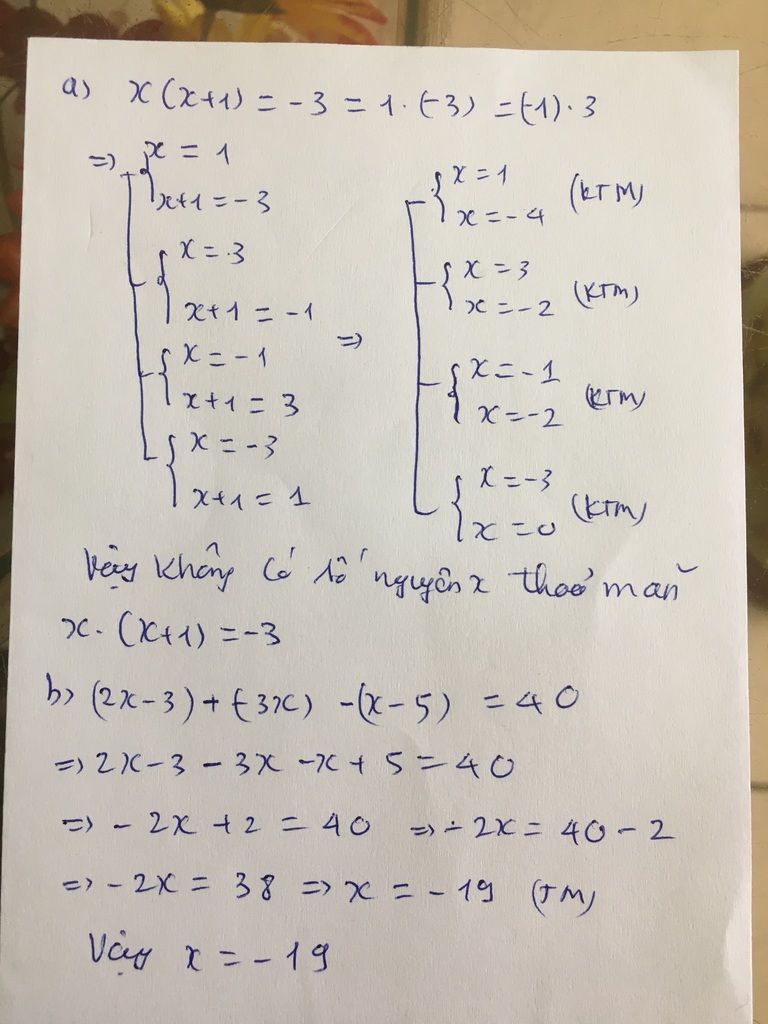 a) x(x+1) = -3 = 1·(-3) = (-1)·3
=> x = 1
x+1 = -3
x = 3
x+1 = -1
x = -1
x+1 = 3
x = -3
x+1 = 1
=>
x = 1
x = -4 (KTM)
x = 3
x = -2 (KTM)
x = -1
x = -2 (KTM)
x = -3
x = 0 (KTM)
Vậy không có số nguyên x thoả mãn
x·(x+1) = -3
b) (2x-3) + (-3x) - (x-5) = 40
=> 2x-3 - 3x - x + 5 = 40
=> - 2x + 2 = 40 => - 2x = 40 - 2
=> - 2x = 38 => x = - 19 (TM)
Vậy x = - 19